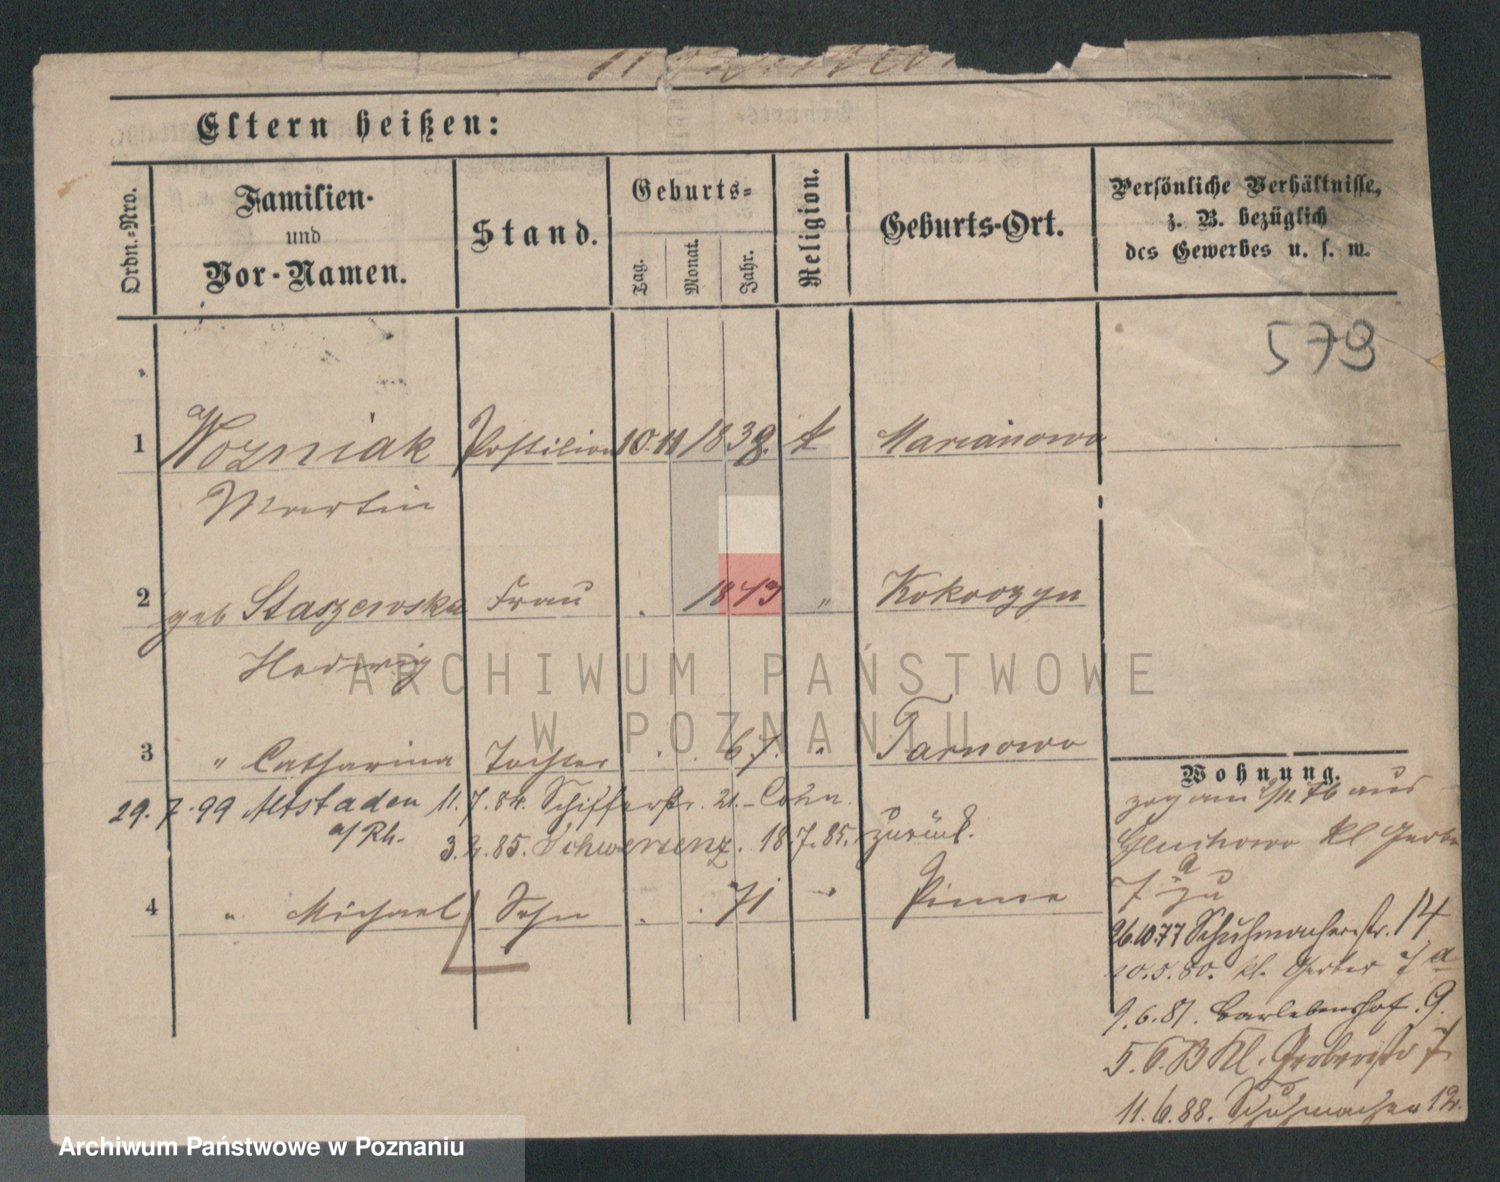 Eltern heißen:
Ordn.-Nro.
Familien-
und
Vor-Namen.
Stand.
Geburts-
Tag.
Monat.
Jahr.
Religion.
Geburts-Ort.
Persönliche Verhältnisse,
z. B. bezüglich
des Gewerbes u. s. w.
579
1 Wozniak Postilion 10. 11 1838. k Marianowo
Martin
2 geb Staszewska Frau . 1843 " Kokorzyn
Hedwig
3 " Catharina Tochter . . 67. " Tarnowo
29. 7. 99 Altstaden 11. 7. 84. Schifferstr. 21.
a/Rh. 3. 2. 85. Schwersenz. 18. 7. 85. zurück.
4 " Michael Sohn . . 71 " Pinne
Wohnung.
zog am 76 aus
kl Gerber
7a zu
26.10.77 Schuhmacherstr. 14
10.5.80. kl. Gerber 7a
9.6.81. Barlebenshof. 9.
5.6. Kl. Gerberstr 7
11.6.88. Schuhmacher 12.
ARCHIWUM PAŃSTWOWE
W POZNANIU
Archiwum Państwowe w Poznaniu